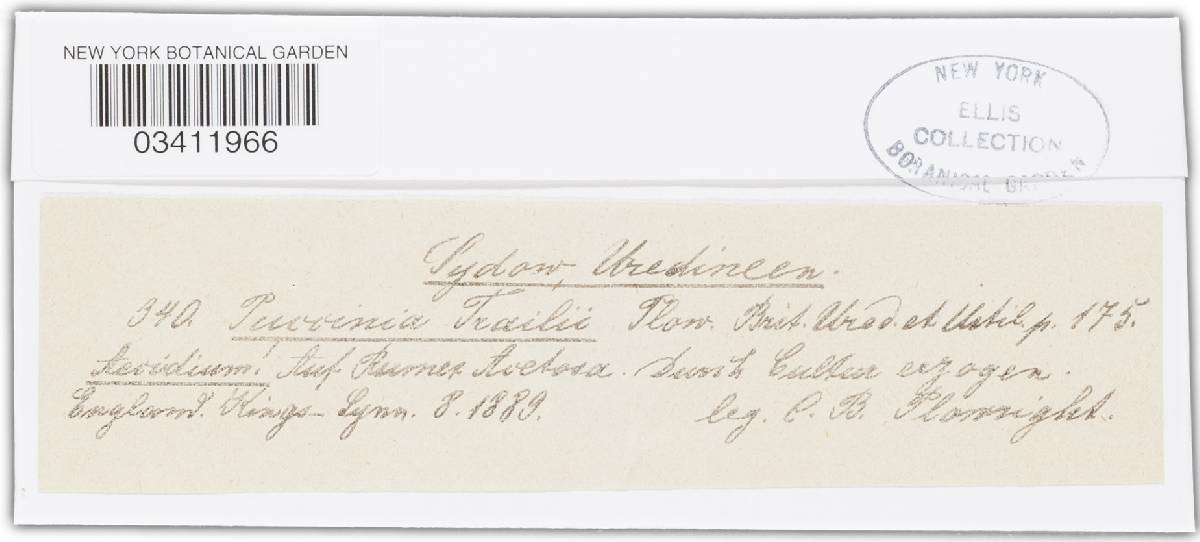 NEW YORK BOTANICAL GARDEN
03411966
NEW YORK
ELLIS
COLLECTION
BOTANICAL GARDEN
Sydow, Uredineen.
340. Puccinia Trailii Plow. Brit. Ured. et Ustil. p. 175.
Aecidium! Auf Rumex Acetosa. Durch Cultur erzogen.
England. Kings-Lynn. 8. 1889. leg. C. B. Plowright.